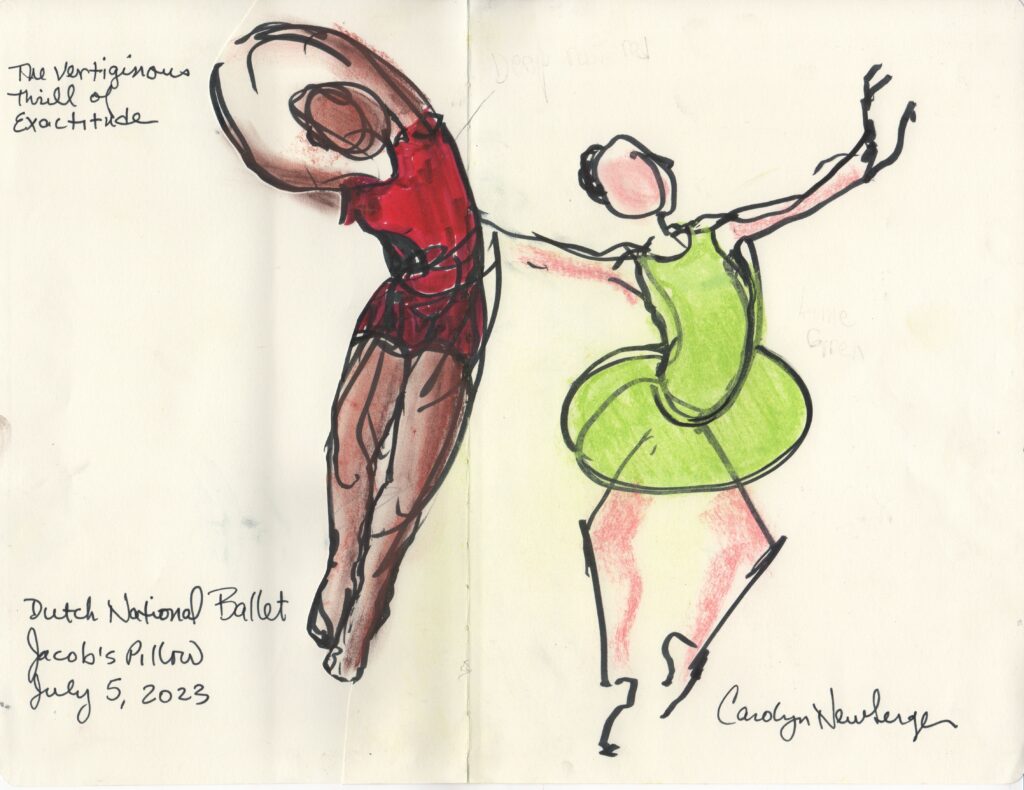 The Vertiginous
Thrill of
Exactitude
Lime
Green
Dutch National Ballet
Jacob's Pillow
July 5, 2023
Carolyn Newberger